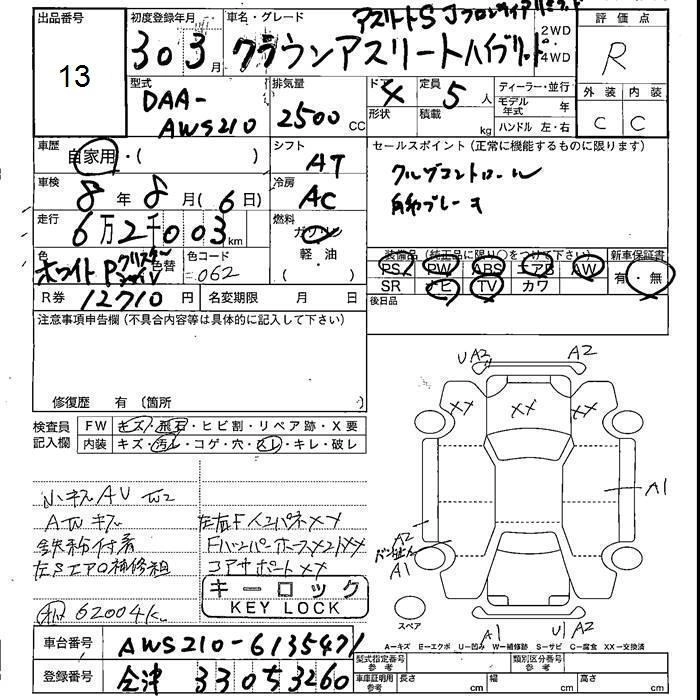 出品番号
13
初度登録年月
30 3月
車名・グレード
アスリートS Jフロンティアリミテッド
クラウンアスリートハイブリッド
2WD
4WD
評価点
R
外装 内装
C C
型式
DAA-
AWS210
排気量
2500 CC
ドア
4
形状
定員
5人
積載
kg
ディーラー・並行
モデル年式 年
ハンドル 左・右
車歴
自家用・( )
シフト
AT
セールスポイント(正常に機能するものに限ります)
クルーズコントロール
自動ブレーキ
車検
8年8月(6日)
冷房
AC
走行
6万2千003km
燃料
ガソリン
軽・油
( )
色
ホワイトPクリスタルシャイン
色替
色コード
062
装備品(純正品に限り○をつけて下さい)
PS PW ABS エアB AW
SR ナビ TV カワ
新車保証書
有・無
R券 12710円
名変期限 月 日
後日品
注意事項申告欄(不具合内容等は具体的に記入して下さい)
修復歴 有(箇所 )
検査員記入欄
FW キズ・飛石・ヒビ割・リペア跡・X要
内装 キズ・汚レ・コゲ・穴・スレ・キレ・破レ
小キズ AU W2
AWキズ
鉄粉付着
左Sエアロ補修組
左右FインパネXX
コアサポートXX
62004K
キーロック
KEY LOCK
UA2 A2
XX XX XX
A1
A2
A1
スペア
A1 U1 A2
A-キズ E-エクボ U-凹み W-補修跡 S-サビ C-腐食 XX-交換済
車台番号
AWS210-6135471
登録番号
会津 330 5 3260
型式指定番号 参考
類別区分番号 参考
車庫証明用 参考
長さ cm 幅 cm 高さ cm